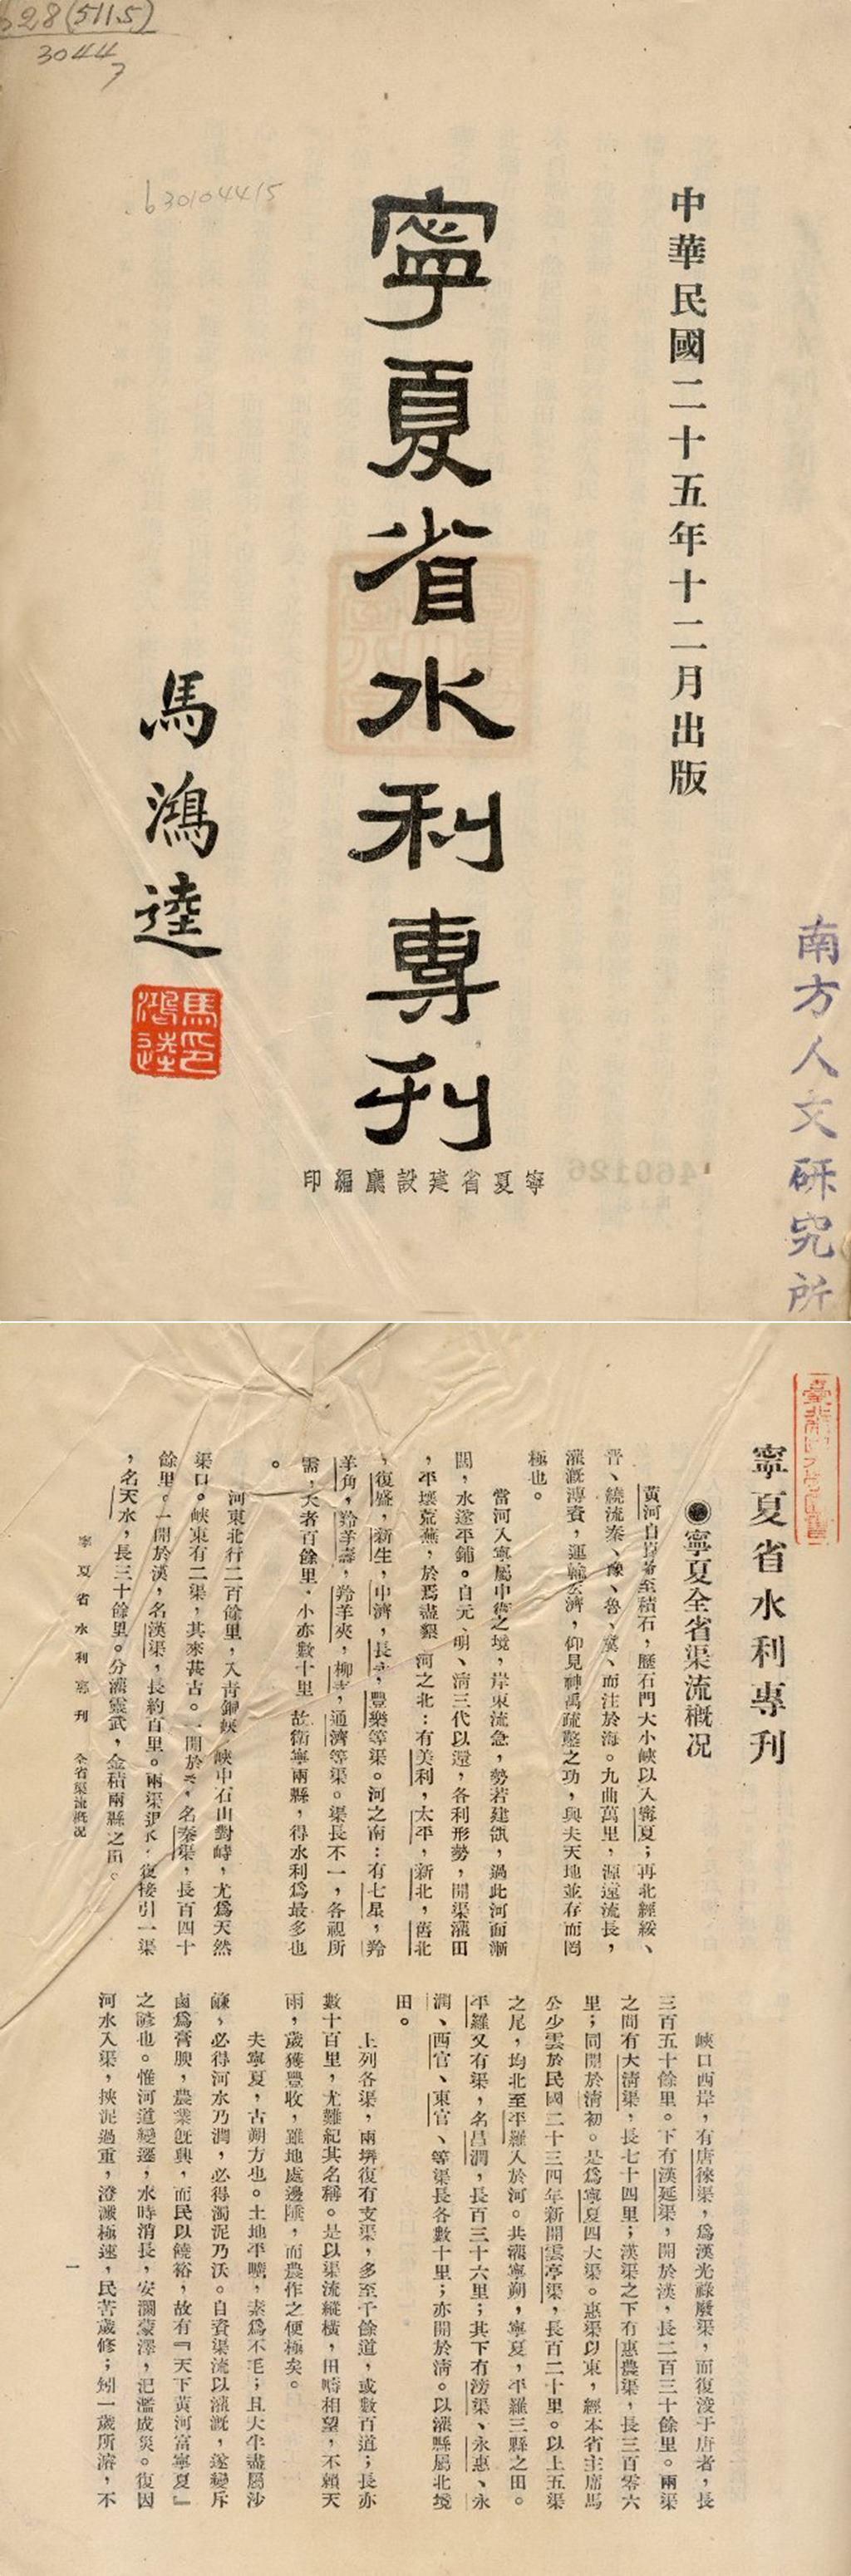 628(511.5)
3044
7
b30104415
中華民國二十五年十二月出版
寧夏省水利專刊
馬鴻逵
馬鴻逵印
寧夏省建設廳編印
南方人文研究所
460126
寧夏省水利專刊
●寧夏全省渠流概况
黃河自崑崙至積石，歷石門大小峽以入寧夏；再北經綏、
晉、繞流秦、豫、魯、冀、而注於海。九曲萬里，源遠流長，
灌漑溥資，運輸玄濟，仰見神禹疏鑿之功，與夫天地並存而罔
極也。
當河入寧屬中衛之境，岸束流急，勢若建瓴，過此河面漸
闊，水遂平鋪。自元、明、淸三代以還，各利形勢，開渠灌田
，平壤荒蕪，於焉盡墾 河之北：有美利，太平，新北，舊北
，復盛，新生，中濟，長 ，豐樂等渠。河之南：有七星，羚
羊角，羚羊壽，羚羊夾，柳 ，通濟等渠。渠長不一，各視所
需，大者百餘里．小亦數十里 故衛寧兩縣，得水利爲最多也
。
河東北行二百餘里，入靑銅峽 峽中石山對峙，尤爲天然
渠口。峽東有二渠，其來甚古。一開於 ，名秦渠，長百四十
餘里。一開於漢，名漢渠，長約百里。兩渠 水 復接引一渠
，名天水，長三十餘里。分灌靈武，金積兩縣之田。
寧夏省水利專刊 全省渠流概况
峽口西岸，有唐徠渠，爲漢光祿廢渠，而復浚于唐者，長
三百五十餘里。下有漢延渠，開於漢，長二百三十餘里。兩渠
之間有大淸渠，長七十四里；漢渠之下有惠農渠，長三百零六
里；同開於淸初。是爲寧夏四大渠。惠渠以東，經本省主席馬
公少雲於民國二十三四年新開雲亭渠，長百二十里。以上五渠
之尾，均北至平羅入於河。共灌寧朔，寧夏，平羅三縣之田。
平羅又有渠，名昌潤，長百三十六里；其下有滂渠、永惠、永
潤、西官、東官、等渠長各數十里；亦開於淸。以灌縣屬北境
田。
上列各渠，兩堋復有支渠，多至千餘道，或數百道；長亦
數十百里，尤難紀其名稱。是以渠流縱橫，田疇相望，不賴天
雨，歲獲豐收，雖地處邊陲，而農作之便極矣。
夫寧夏，古朔方也。土地平曠，素爲不毛；且大半盡屬沙
鹼，必得河水乃潤，必得濁泥乃沃。自資渠流以灌漑，遂變斥
鹵爲膏腴，農業旣興，而民以饒裕，故有『天下黃河富寧夏』
之諺也。惟河道變遷，水時消長，安瀾蒙澤，汜濫成災。復因
河水入渠，挾泥過重，澄澱極速，民苦歲修；矧一歲所濬，不
一